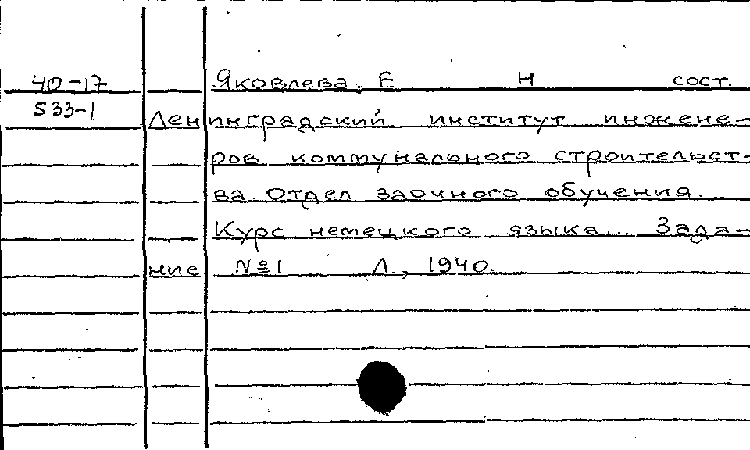 40-17 Яковлева, Е Н сост.
533-1
Ленинградский институт инжене-
ров коммунального строительст-
ва. Отдел заочного обучения.
Курс немецкого языка... Зада-
ние №1 Л., 1940.